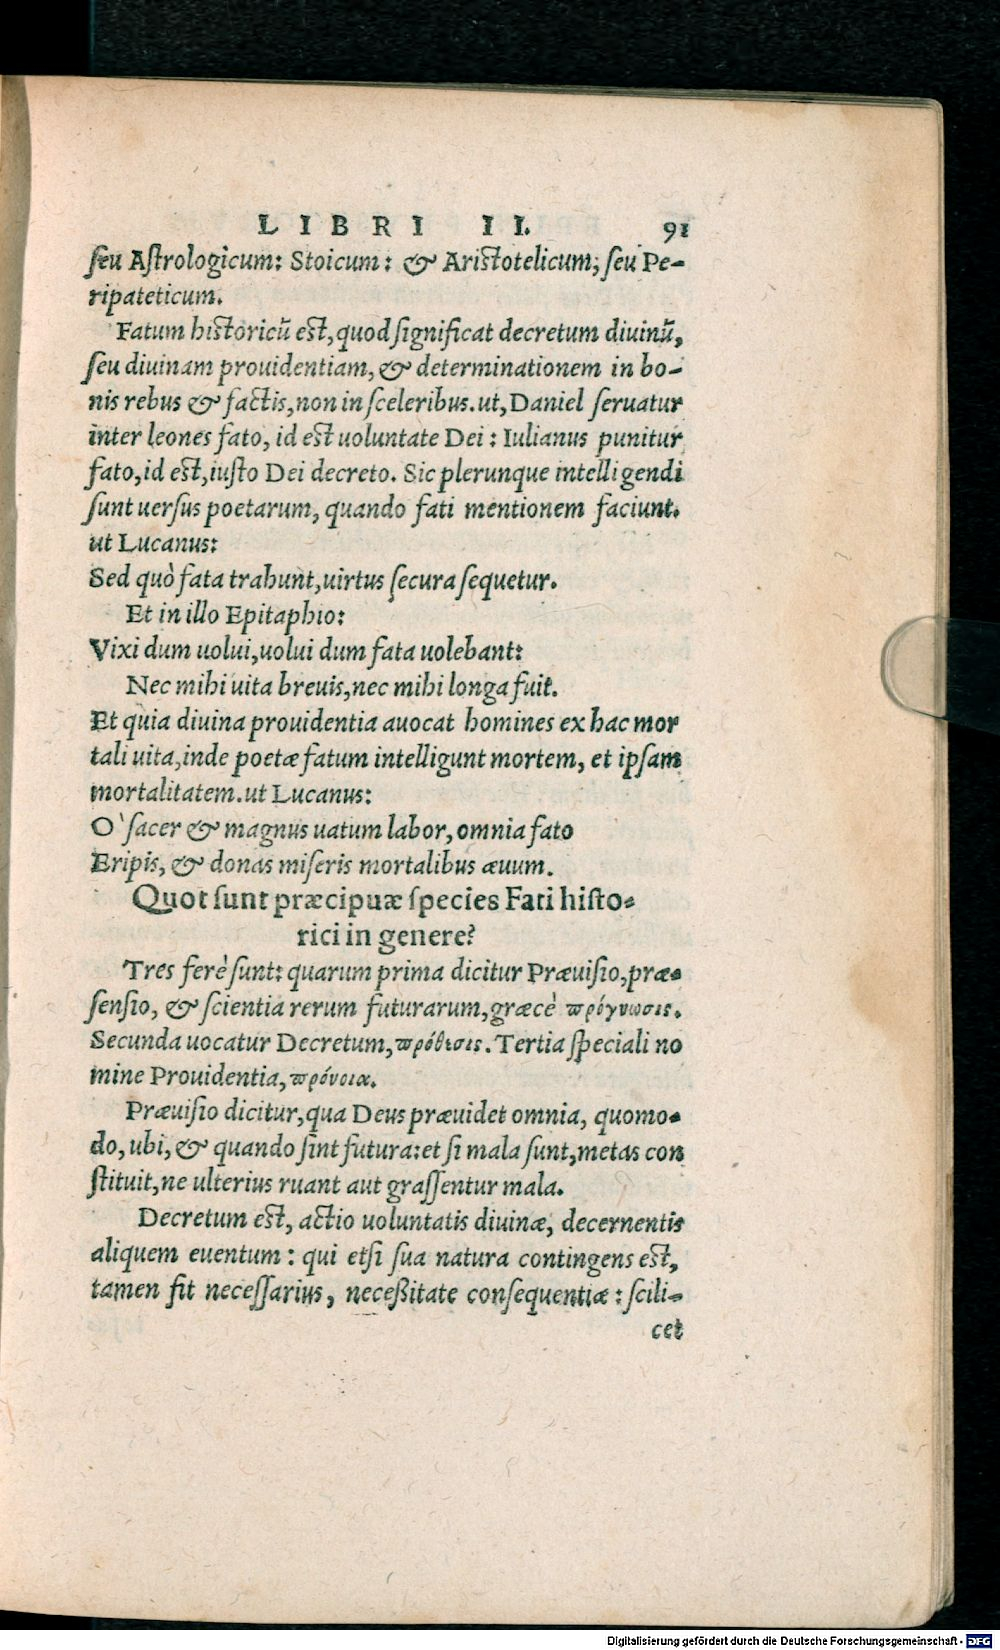 LIBRI II. 91
seu Astrologicum: Stoicum: & Aristotelicum, seu Pe-
ripateticum.
Fatum historicũ est, quod significat decretum diuinũ,
seu diuinam prouidentiam, & determinationem in bo-
nis rebus & factis, non in sceleribus. ut, Daniel seruatur
inter leones fato, id est uoluntate Dei: Iulianus punitur
fato, id est, iusto Dei decreto. Sic plerunque intelligendi
sunt uersus poetarum, quando fati mentionem faciunt.
ut Lucanus:
Sed quò fata trahunt, uirtus secura sequetur.
Et in illo Epitaphio:
Vixi dum uolui, uolui dum fata uolebant:
Nec mihi uita breuis, nec mihi longa fuit.
Et quia diuina prouidentia auocat homines ex hac mor
tali uita, inde poetæ fatum intelligunt mortem, et ipsam
mortalitatem. ut Lucanus:
O` sacer & magnus uatum labor, omnia fato
Eripis, & donas miseris mortalibus æuum.
Quot sunt præcipuæ species Fati histo-
rici in genere?
Tres ferè sunt: quarum prima dicitur Præuisio, præ-
sensio, & scientia rerum futurarum, græcè πρόγνωσις.
Secunda uocatur Decretum, πρόθεσις. Tertia speciali no
mine Prouidentia, πρόνοια.
Præuisio dicitur, qua Deus præuidet omnia, quomo-
do, ubi, & quando sint futura: et si mala sunt, metas con
stituit, ne ulterius ruant aut grassentur mala.
Decretum est, actio uoluntatis diuinæ, decernentis
aliquem euentum: qui etsi sua natura contingens est,
tamen fit necessarius, neceßitate consequentiæ: scili-
cet
Digitalisierung gefördert durch die Deutsche Forschungsgemeinschaft - DFG